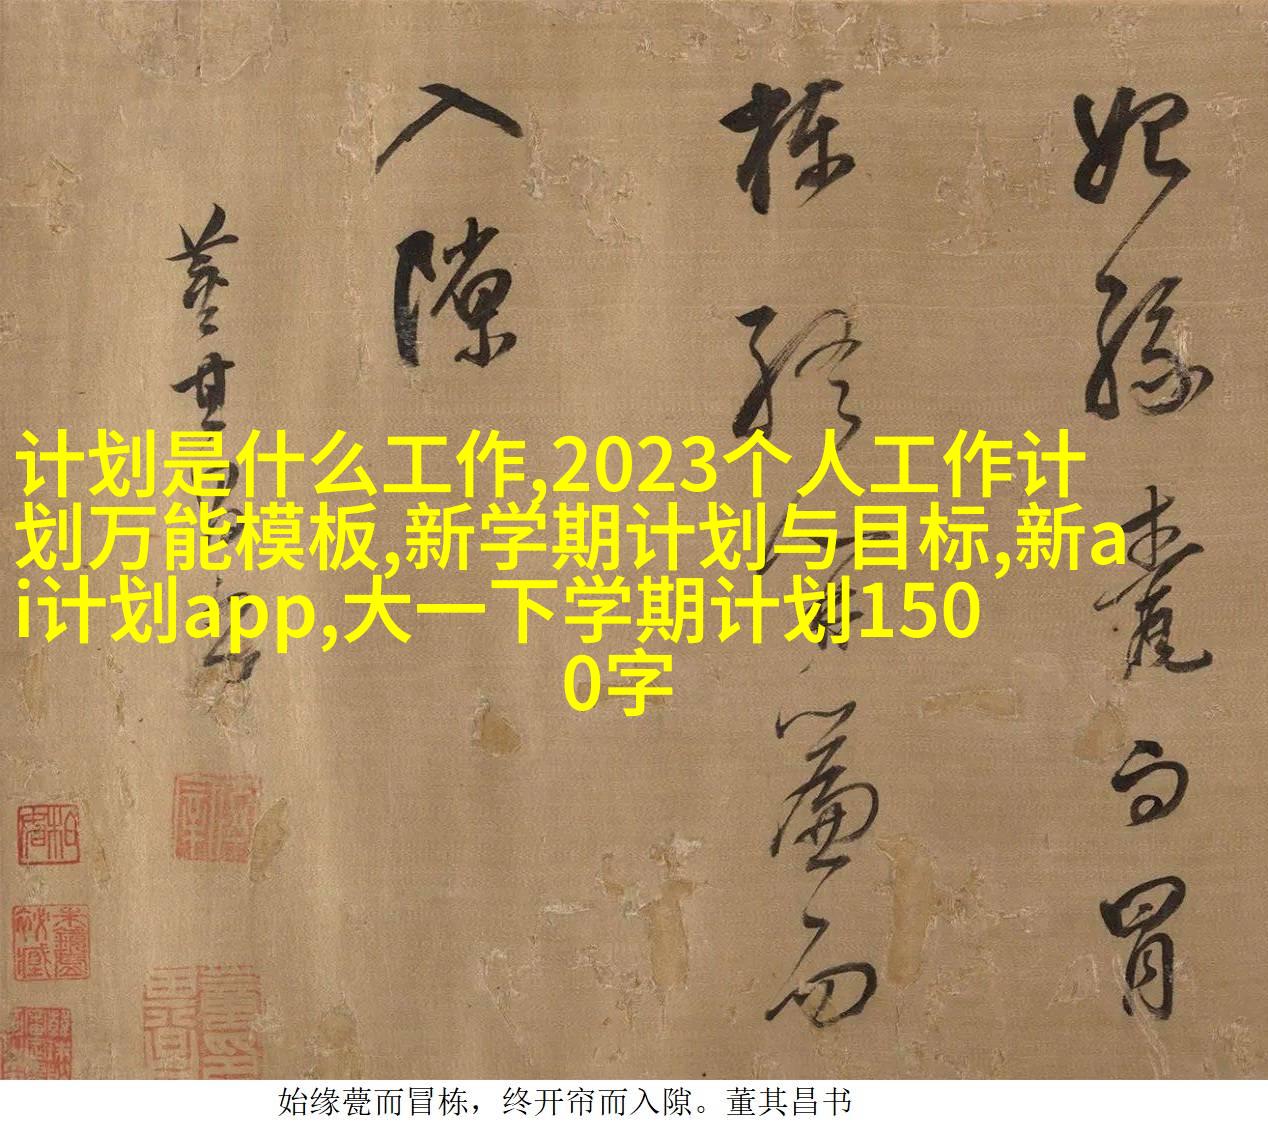 始緣甍而冒
棟終開簾而
入隙
董其昌書
计划是什么工作,2023个人工作计
划万能模板,新学期计划与目标,新a
i计划app,大一下学期计划150
0字
始缘甍而冒栋，终开帘而入隙。董其昌书